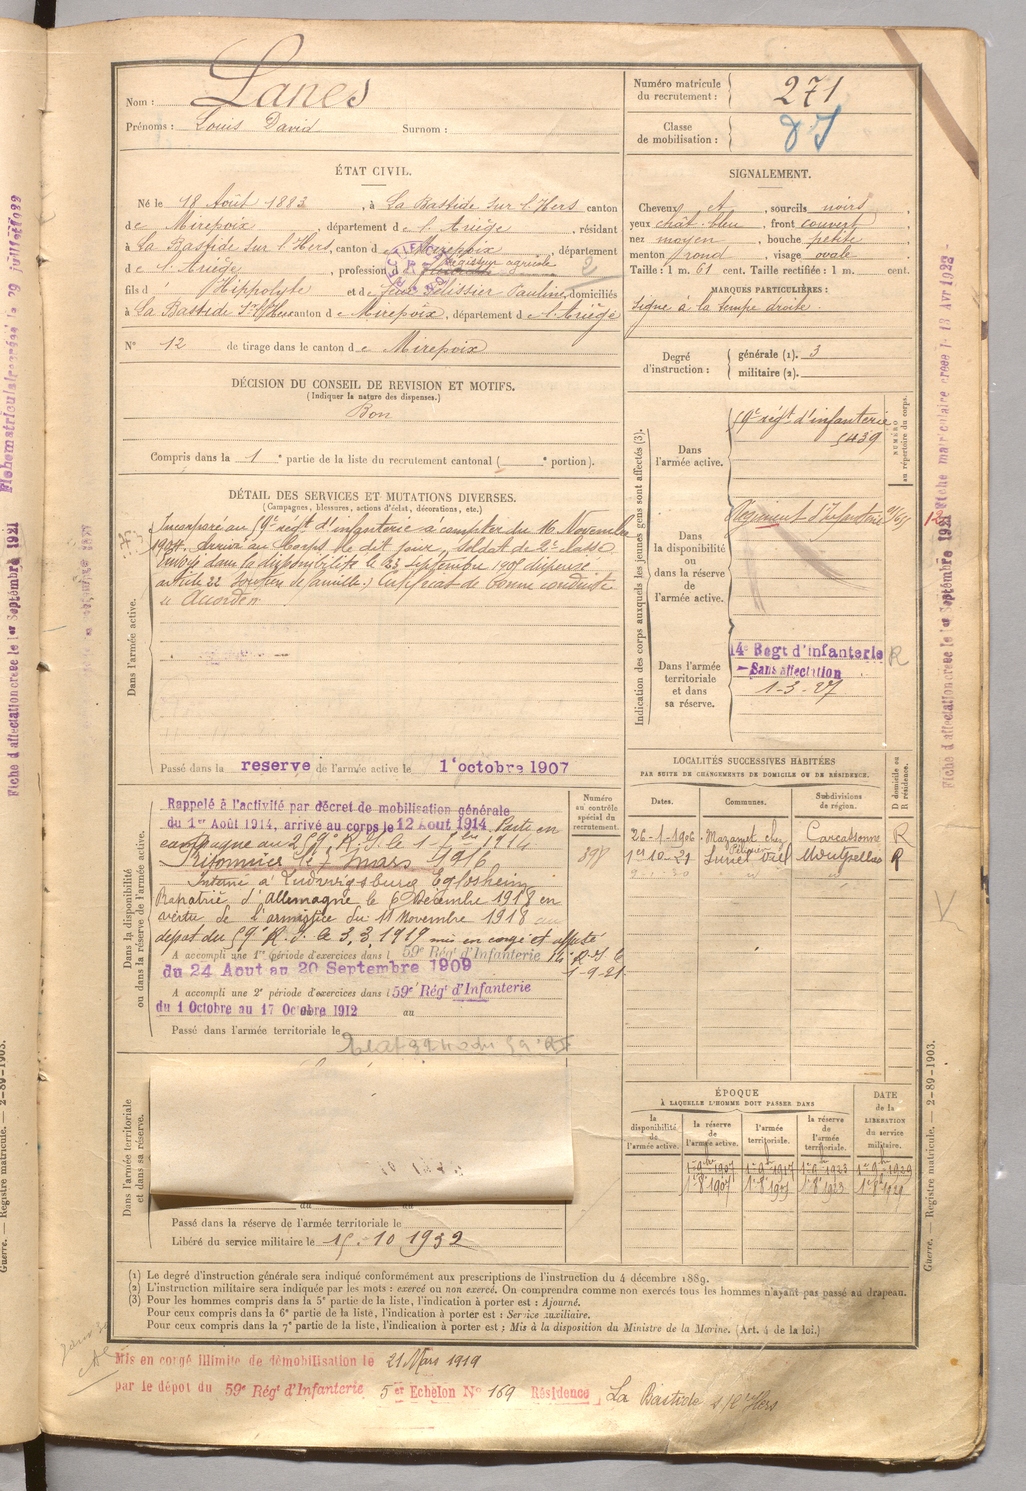 Nom : Lanes
Prénoms : Louis David Surnom :
Numéro matricule du recrutement : 271
Classe de mobilisation :
ÉTAT CIVIL.
Né le 18 Août 1883, à La Bastide sur l'Hers canton
de Mirepoix, département de l'Ariège, résidant
à La Bastide sur l'Hers, canton de Mirepoix, département
de l'Ariège, profession d agricole
fils d Hippolyte et de Pélissier Pauline, domiciliés
à La Bastide s/ l'Hers canton de Mirepoix, département de l'Ariège
N° 12 de tirage dans le canton de Mirepoix
SIGNALEMENT.
Cheveux et, sourcils noirs,
yeux chât. bleu, front couvert,
nez moyen, bouche petite,
menton rond, visage ovale.
Taille : 1 m. 61 cent. Taille rectifiée : 1 m. cent.
MARQUES PARTICULIÈRES :
Signe à la tempe droite.
Degré d'instruction : générale (1). 3
militaire (2).
DÉCISION DU CONSEIL DE REVISION ET MOTIFS.
(Indiquer la nature des dispenses.)
Bon
Compris dans la 1e partie de la liste du recrutement cantonal ( e portion).
DÉTAIL DES SERVICES ET MUTATIONS DIVERSES.
(Campagnes, blessures, actions d'éclat, décorations, etc.)
Dans l'armée active.
Incorporé au 59e régt d'infanterie à compter du 16 Novembre
1904. Arrivé au Corps le dit jour, Soldat de 2e classe.
Envoyé dans la disponibilité le 23 septembre 1905 dispensé
article 22 (soutien de famille.) Certificat de bonne conduite
« Accordé ».
Passé dans la reserve de l'armée active le 1er octobre 1907
Indication des corps auxquels les jeunes gens sont affectés (3).
NUMÉRO au répertoire du corps.
Dans l'armée active.
59e régt d'infanterie
5439
Dans la disponibilité ou dans la réserve de l'armée active.
Régiment d'Infanterie
Dans l'armée territoriale et dans sa réserve.
14e Régt d'infanterie R
Sans affectation
1-3-27
LOCALITÉS SUCCESSIVES HABITÉES
PAR SUITE DE CHANGEMENTS DE DOMICILE OU DE RÉSIDENCE.
Dates. Communes. Subdivisions de région. D domicile ou R résidence.
26-1-1906 Mazamet chez Pélissier Carcassonne R
1er 10-21 Lunel Viel Montpellier R
Dans la disponibilité ou dans la réserve de l'armée active.
Numéro au contrôle spécial du recrutement.
898
Rappelé à l'activité par décret de mobilisation générale
du 1er Août 1914, arrivé au corps le 12 Août 1914. Parti en
campagne au 259e R.I. le 1 7bre 1914
Prisonnier le 7 mars 1916
Interné à Ludwigsburg Eglosheim
Rapatrié d'Allemagne le 6 Décembre 1918 en
vertu de l'armistice du 11 Novembre 1918 au
dépôt du 59e R.I. le 3.3.1919 mis en congé et affecté
A accompli une 1re période d'exercices dans l 59e Régt d'Infanterie
1-9-21
du 24 Aout au 20 Septembre 1909
A accompli une 2e période d'exercices dans l 59e Régt d'Infanterie
du 1 Octobre au 17 Octobre 1912 au
Passé dans l'armée territoriale le
Dans l'armée territoriale et dans sa réserve.
Passé dans la réserve de l'armée territoriale le
Libéré du service militaire le 15-10 1932
ÉPOQUE
À LAQUELLE L'HOMME DOIT PASSER DANS
DATE de la LIBÉRATION du service militaire.
la disponibilité de l'armée active. la réserve de l'armée active. l'armée territoriale. la réserve de l'armée territoriale.
(1) Le degré d'instruction générale sera indiqué conformément aux prescriptions de l'instruction du 4 décembre 1889.
(2) L'instruction militaire sera indiquée par les mots : exercé ou non exercé. On comprendra comme non exercés tous les hommes n'ayant pas passé au drapeau.
(3) Pour les hommes compris dans la 5e partie de la liste, l'indication à porter est : Ajourné.
Pour ceux compris dans la 6e partie de la liste, l'indication à porter est : Service auxiliaire.
Pour ceux compris dans la 7e partie de la liste, l'indication à porter est : Mis à la disposition du Ministre de la Marine. (Art. 4 de la loi.)
Mis en congé illimité de démobilisation le 21 Mars 1919
par le dépot du 59e Régt d'Infanterie 5er Echelon N° 169 Résidence La Bastide s/ l'Hers
Guerre. — Registre matricule. — 2-89-1903.
Guerre. — Registre matricule. — 2-89-1903.
Fiche d'affectation créée le 1er Septembre 1921
Fiche matriculaire créée le 29 juillet
Fiche d'affectation créée le 1er Septembre 1921
Fiche matriculaire créée le 18 Avr